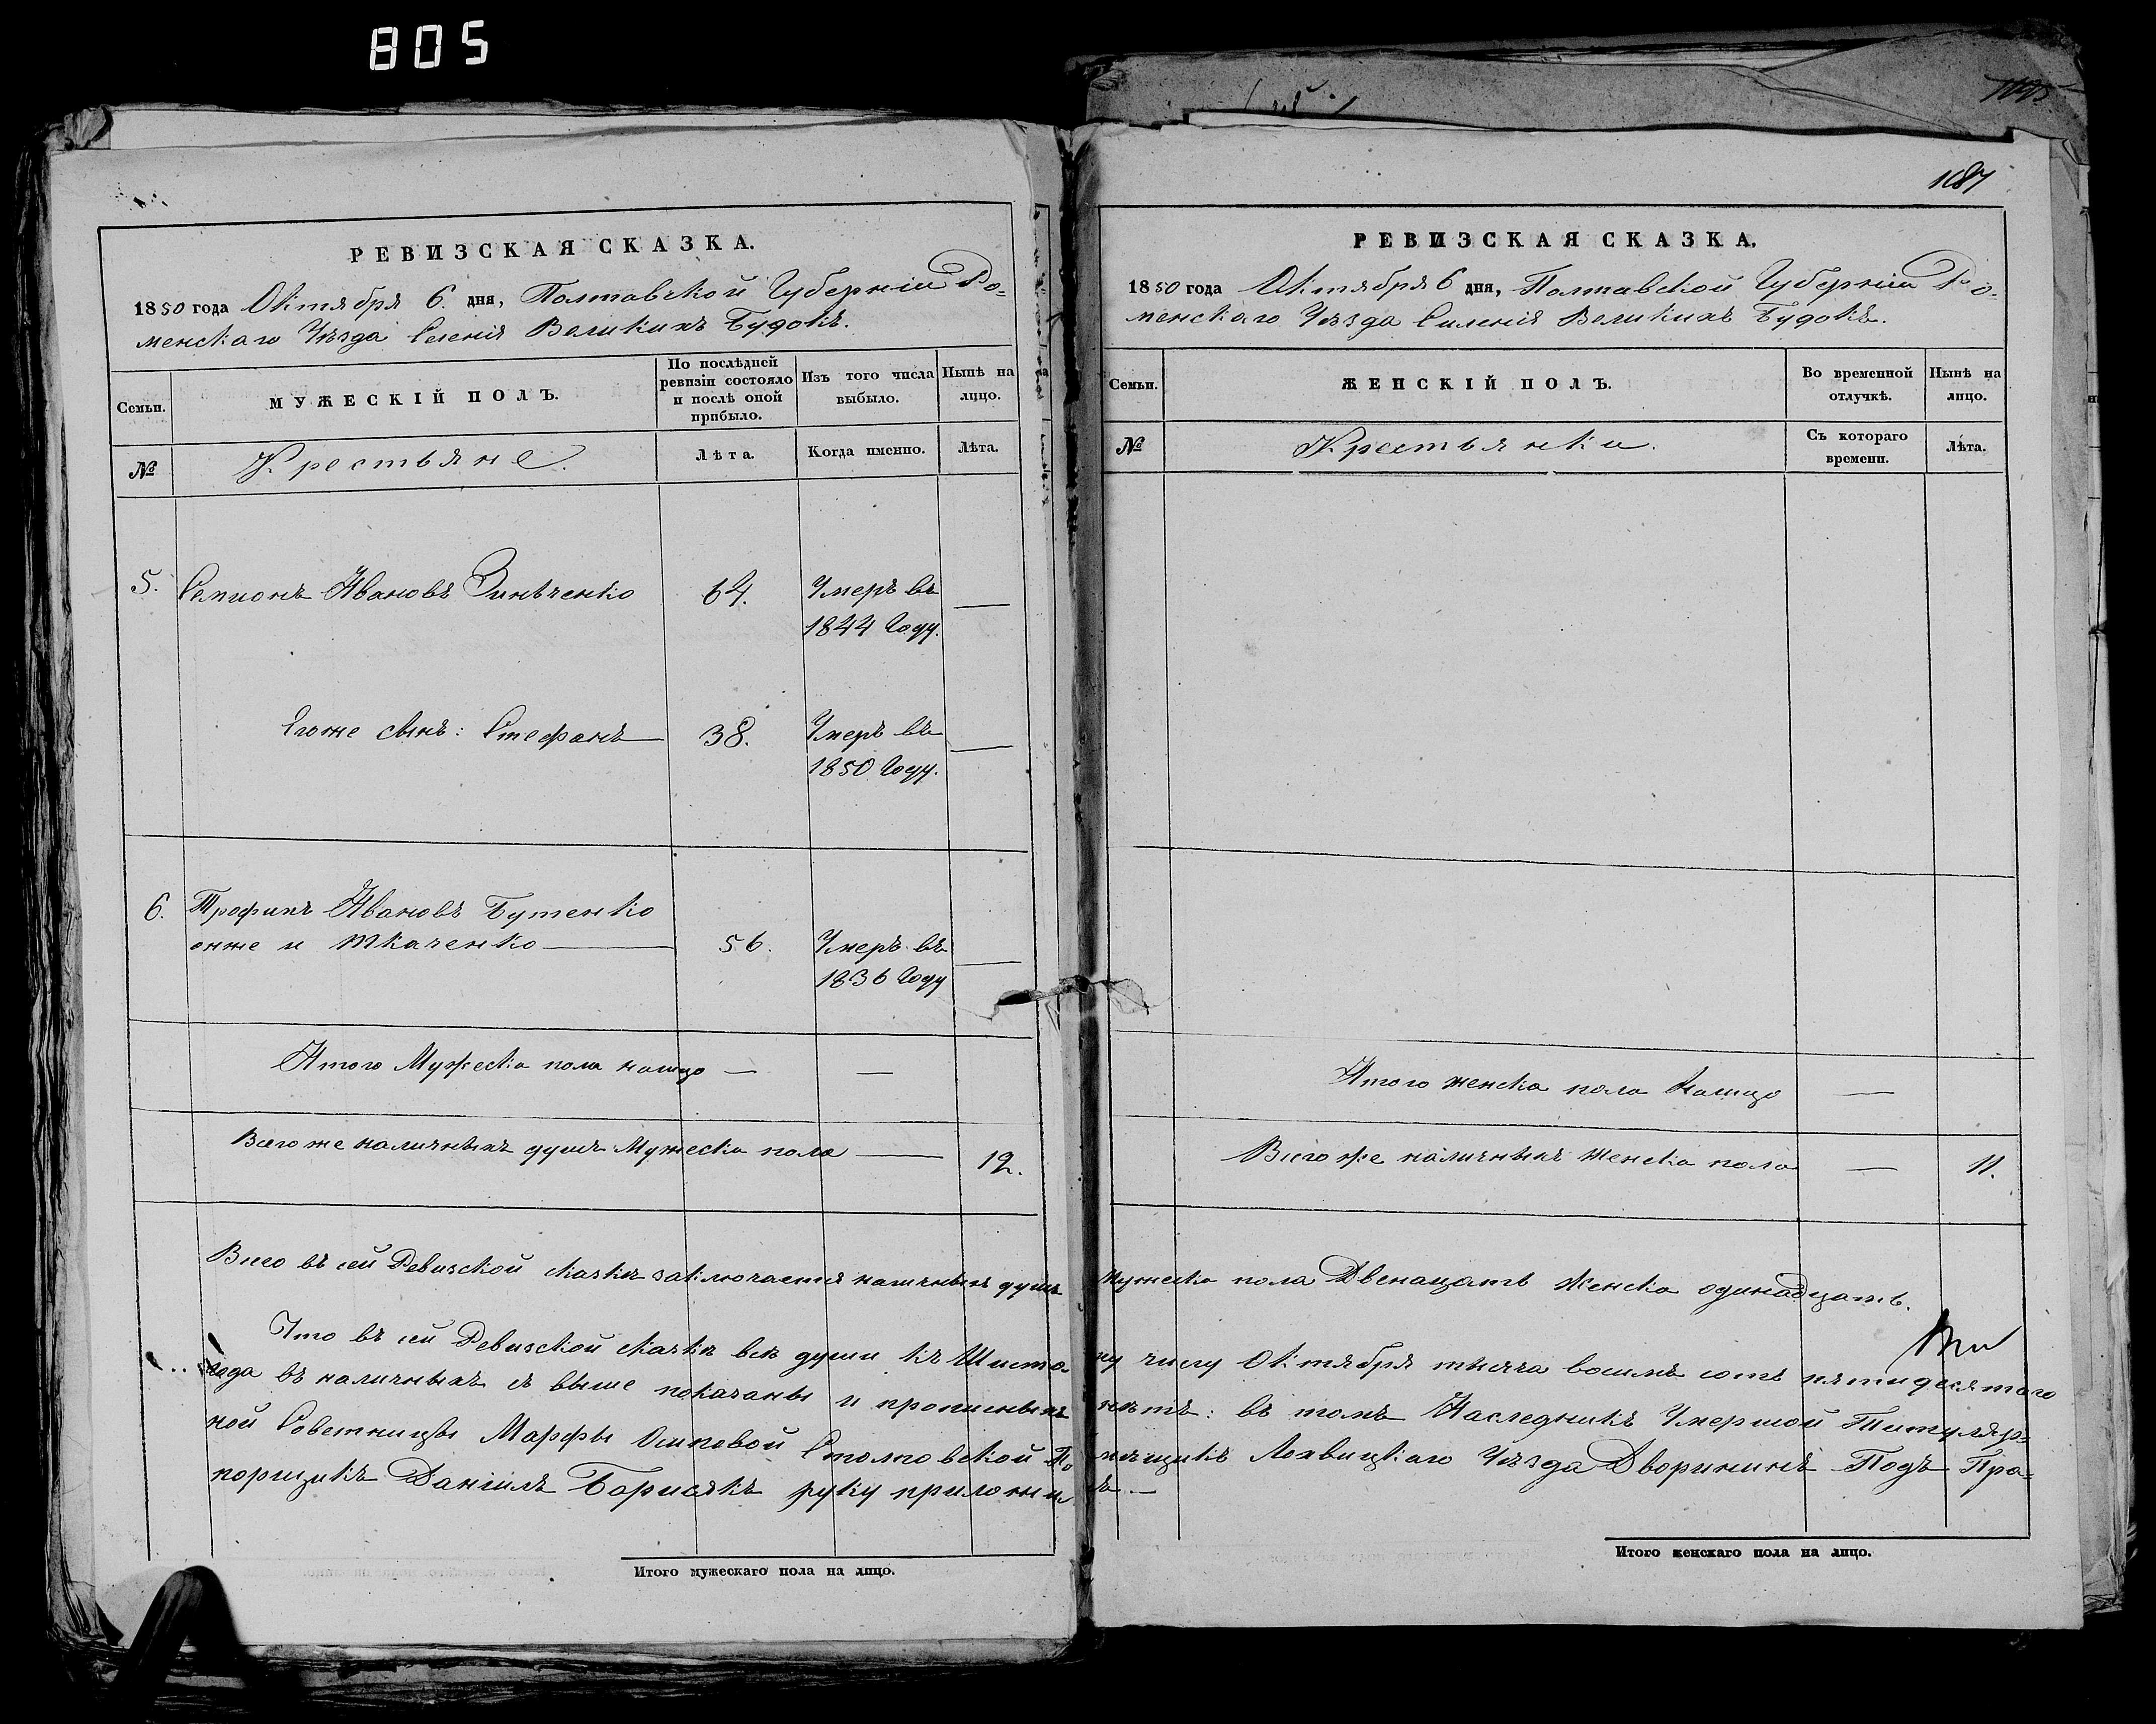 805
1187
РЕВИЗСКАЯ СКАЗКА.
1850 года Октября 6. дня, Полтавской Губерніи Ро-
менскаго Уѣзда Селенія Великихъ Будокъ.
Семьи.
МУЖЕСКІЙ ПОЛЪ.
По послѣдней
ревизіи состояло
и послѣ оной
прибыло.
Изъ того числа
выбыло.
Нынѣ на
лицо.
№
Крестьяне.
Лѣта.
Когда именно.
Лѣта.
5. Семионъ Ивановъ Зинѣченко 64. Умеръ въ —
1844 Году.
Егоже сынъ: Стефанъ 38. Умеръ въ —
1850 Году.
6. Трофимъ Ивановъ Бутенко
онже и Ткаченко — 56. Умеръ въ —
1836 Году
Итого Мужеска пола налицо — —
Всего же наличныхъ душъ Мужеска пола — 12.
РЕВИЗСКАЯ СКАЗКА.
1850 года Октября 6 дня, Полтавской Губерніи Ро-
менскаго Уѣзда Силенія Великихъ Будокъ.
Семьи.
ЖЕНСКІЙ ПОЛЪ.
Во временной
отлучкѣ.
Нынѣ на
лицо.
№
Крестьянки.
Съ котораго
времени.
Лѣта.
Итого женска пола Налицо —
Всего же наличныхъ Женска пола — 11.
Всего въ сей Ревизской сказкѣ заключается наличныхъ душъ Мужеска пола Двенацать Женска одинадцать.
Что въ сей Ревизской сказкѣ всѣ души къ Шесто-му числу Октября тысяча восимь сотъ пятидесятого
года въ наличныхъ съ выше показаны и прописныхъ нѣтъ: въ томъ Наследникъ Умершой Титуляр-
ной Советницы Марфы Осиповой Столповской Помѣщикъ Лохвицкаго Уѣзда Дворянинъ Подъ Пра-
порщикъ Даніилъ Борисякъ руку приложилъ. —
Итого мужескаго пола на лицо.
Итого женскаго пола на лицо.